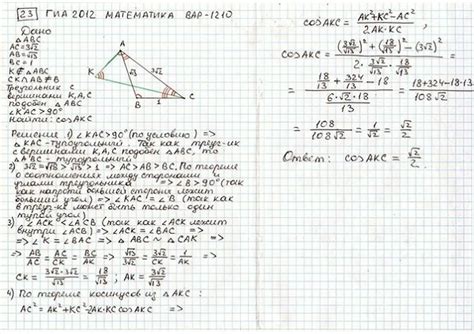 23 ГИА 2012 МАТЕМАТИКА ВАР-1210
Дано
△ABC
AC=3√2
AB=√13
BC=1
K∉△ABC
CK∩AB≠B
Треугольник с
вершинами K,A,C
подобен △ABC
∠KAC>90°
Найти: cosAKC
A
K
B
C
√13
3√2
1
Решение 1) ∠KAC>90° (по условию) =>
△KAC - тупоугольный. Так как треуг-ик
с вершинами K,A,C подобен △ABC, то
△ABC - тупоугольный
2) 3√2 > √13 > 1 => AC>AB>BC. По теореме
о соотношениях между сторонами и
углами треугольника => ∠B>90° (так
как напротив большей стороны лежит
больший угол) => ∠KAC = ∠B (так как
в треуг-ке может быть только один
тупой угол)
3) ∠ACK < ∠ACB (так как ∠ACK лежит
внутри ∠ACB) => ∠ACK = ∠BAC =>
=> ∠K = ∠BAC => △ABC ~ △CAK =>
=> AB/AC = AC/CK = BC/AK => √13/3√2 = 3√2/CK = 1/AK =>
CK = 3√2·3√2/√13 = 18/√13 ; AK = 3√2/√13
4) По теореме косинусов из △AKC:
AC² = AK² + KC² - 2AK·KC cosAKC =>
cosAKC = AK²+KC²-AC²/2AK·KC ,
cosAKC = (3√2/√13)² + (18/√13)² - (3√2)²/2·3√2/√13·18/√13 =
= 18/13 + 324/13 - 18/6·√2·18/13 = 18+324-18·13/108√2 =
= 108/108√2 = 1/√2 = √2/2
Ответ: cosAKC = √2/2